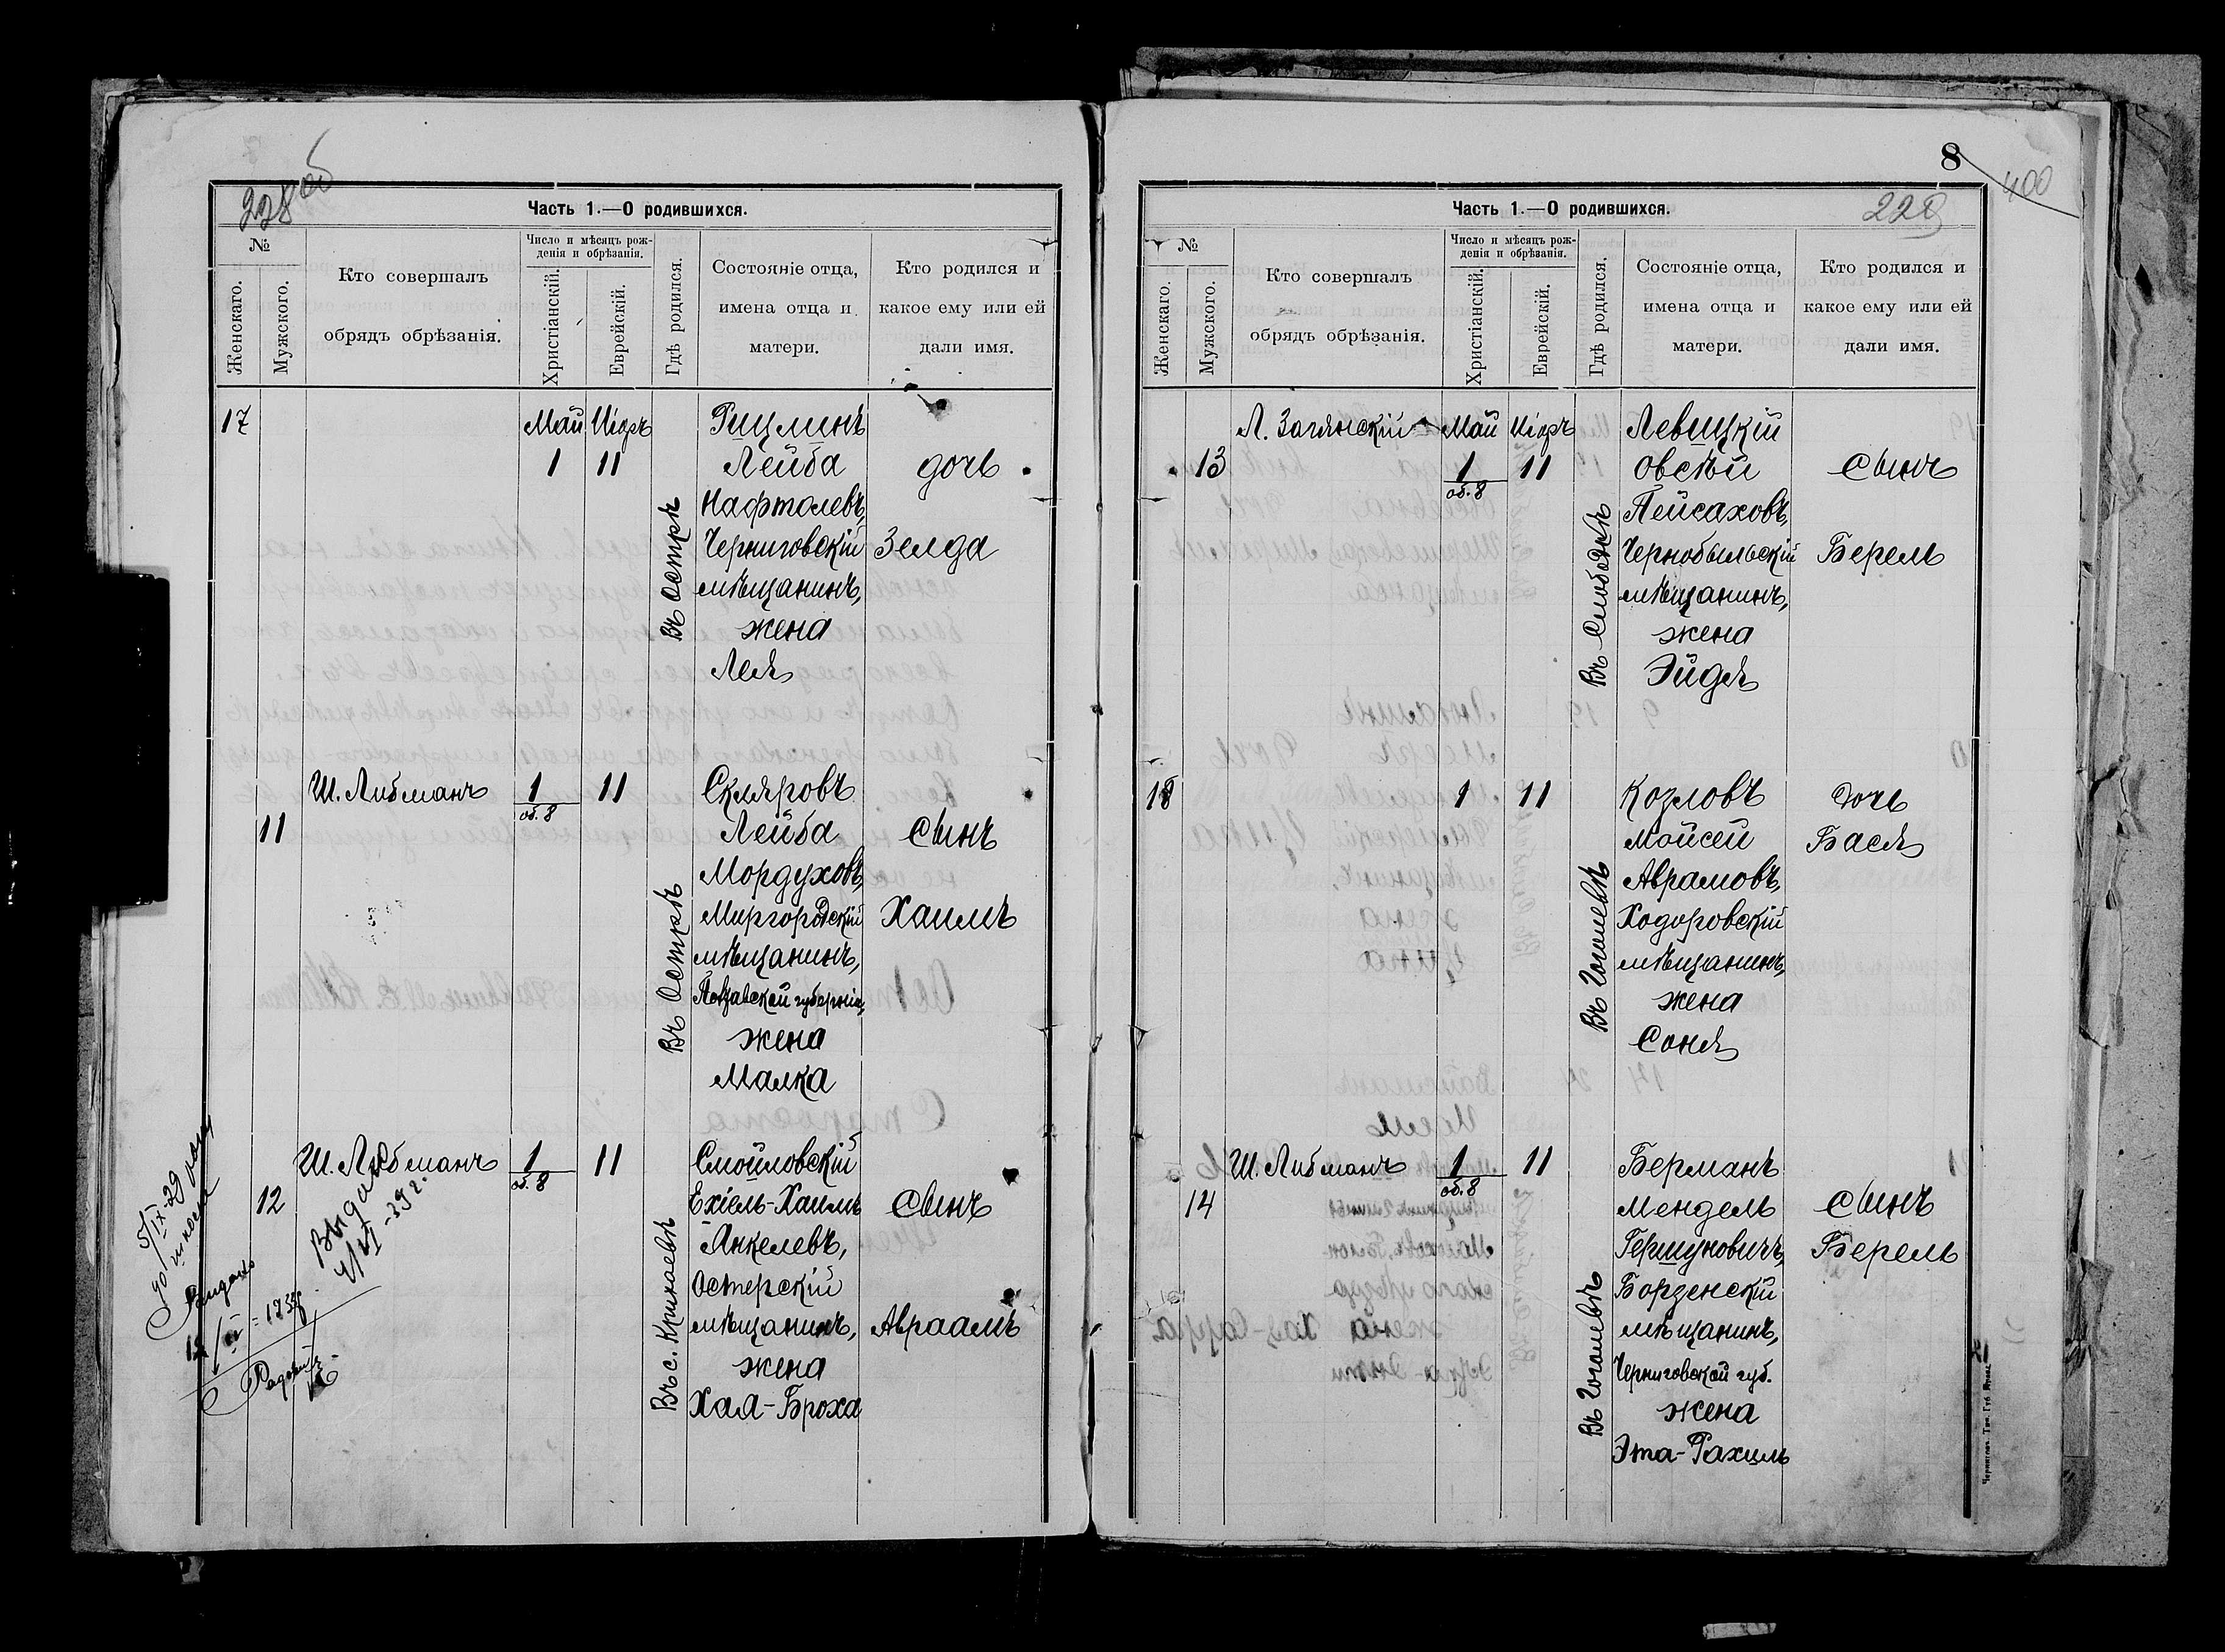 228об
Часть 1.—О родившихся.
№
Женскаго.
Мужского.
Кто совершалъ
обрядъ обрѣзанія.
Число и мѣсяцъ рож-
денія и обрѣзанія.
Христіанскій.
Еврейскій.
Гдѣ родился.
Состояніе отца,
имена отца и
матери.
Кто родился и
какое ему или ей
дали имя.
17 Май Ііоръ Рицлинъ
1 11 Лейба дочь
Нафтолевъ,
Черниговскій Зелда
мѣщанинъ,
жена
Лея
Въ Острѣ
Ш. Либманъ 1 11 Скляровъ
об. 8
11 Лейба сынъ
Мордуховъ,
Миргородскій Хаимъ
мѣщанинъ,
Полтавской губерніи,
жена
Малка
Въ Острѣ
Ш. Либманъ 1 11 Смойловскій
об. 8
12 Ехіель-Хаимъ сынъ
Янкелевъ,
Остерскій
мѣщанинъ, Авраамъ
жена
Хая-Броха
Въ с. Крихаевѣ
5/IX-29
Выдано
4/VI-39 г.
8
400
229
Часть 1.—О родившихся.
№
Женскаго.
Мужского.
Кто совершалъ
обрядъ обрѣзанія.
Число и мѣсяцъ рож-
денія и обрѣзанія.
Христіанскій.
Еврейскій.
Гдѣ родился.
Состояніе отца,
имена отца и
матери.
Кто родился и
какое ему или ей
дали имя.
Л. Заглянскій Май Ііоръ Левицкій
13 1 11 Овсѣй сынъ
об. 8
Пейсаховъ,
Чернобыльскій Берель
мѣщанинъ,
жена
Эйдля
Въ Слободкѣ
18 1 11 Козловъ дочь
Мойсей Бася
Аврамовъ,
Ходоровскій
мѣщанинъ,
жена
Соня
Въ Гоголевѣ
Ш. Либманъ 1 11 Берманъ
об. 8
14 Мендель сынъ
Гершуновичъ, Берель
Борзенскій
мѣщанинъ,
Черниговской губ.
жена
Эта-Рахиль
Въ Гоголевѣ